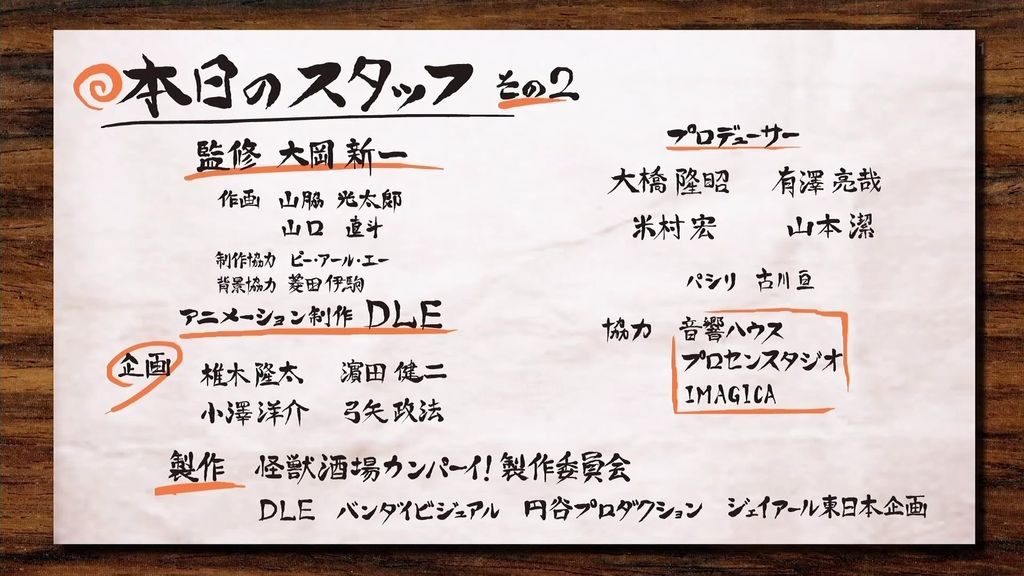 本日のスタッフ その2
監修 大岡新一
作画 山脇光太郎
山口 直斗
制作協力 ピー・アール・エー
背景協力 菱田伊駒
アニメーション制作 DLE
企画
椎木隆太 濵田健二
小澤洋介 弓矢政法
プロデューサー
大橋隆昭 有澤亮哉
米村宏 山本潔
パシリ 古川亘
協力 音響ハウス
プロセンスタジオ
IMAGICA
製作 怪獣酒場カンパーイ!製作委員会
DLE バンダイビジュアル 円谷プロダクション ジェイアール東日本企画